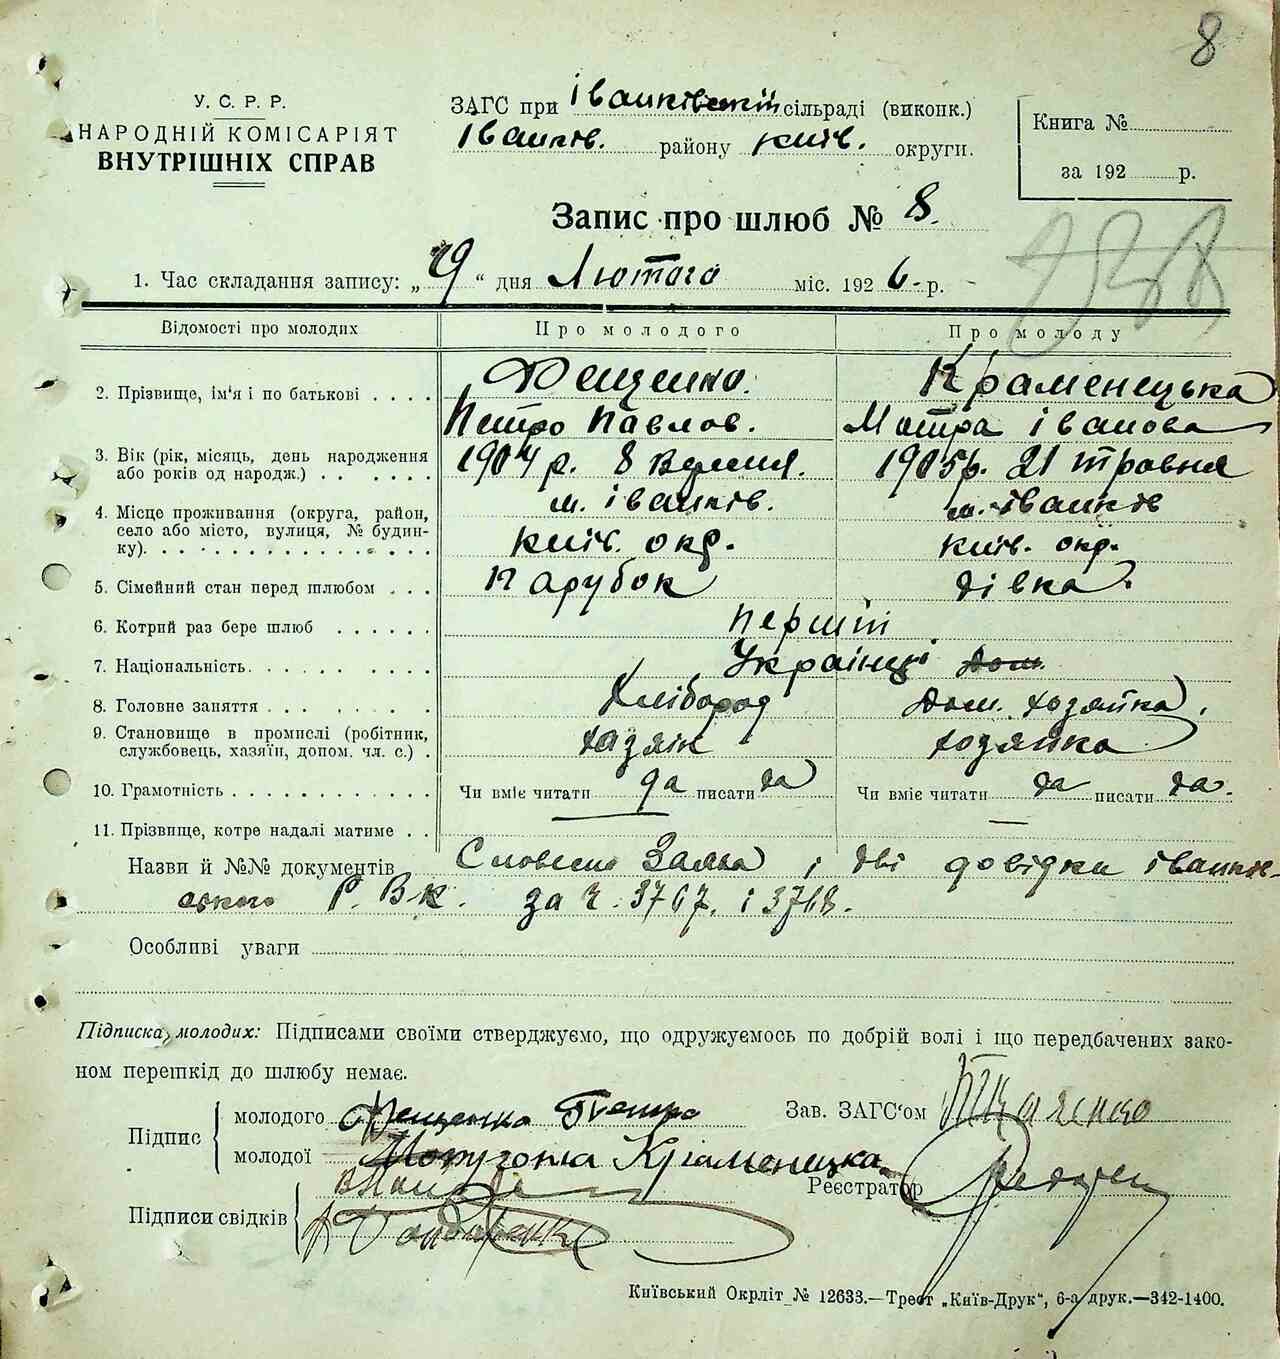 8
У. С. Р. Р.
НАРОДНІЙ КОМІСАРІЯТ
ВНУТРІШНІХ СПРАВ
ЗАГС при Іванківській сільраді (виконк.)
Іванків. району Київ. округи.
Книга №
за 192 р.
Запис про шлюб № 8.
1. Час складання запису: „ 9 “ дня Лютого міс. 1926 р.
Відомості про молодих Про молодого Про молоду
2. Прізвище, ім'я і по батькові Фещенко. Краменецька
Петро Павлов. Мотра Іванова
3. Вік (рік, місяць, день народження або років од народж.) 1904 р. 8 1905р. 21 травня
4. Місце проживання (округа, район, село або місто, вулиця, № будинку). м. Іванків. м. Іванків
Київ. окр. Київ. окр.
5. Сімейний стан перед шлюбом парубок дівка.
6. Котрий раз бере шлюб перший
7. Національність. Українці дом.
8. Головне заняття Хлібороб Дом. хозяйка.
9. Становище в промислі (робітник, службовець, хазяїн, допом. чл. с.) хазяїн хозяйка
10. Грамотність Чи вміє читати да писати да Чи вміє читати да писати да.
11. Прізвище, котре надалі матиме — —
Назви й №№ документів Словесна Заява і дві довідки Іванків-
ського Р. В К. за ч. 3767. і 3768.
Особливі уваги
Підписка молодих: Підписами своїми стверджуємо, що одружуємось по добрій волі і що передбачених зако-
ном перешкід до шлюбу немає.
Підпис молодого Фещенко Петро
молодої Краменицка
Зав. ЗАГС'ом
Реєстратор
Підписи свідків Бондаренко
Київський Окрліт № 12633.—Трест „Київ-Друк“, 6-а друк.—342-1400.